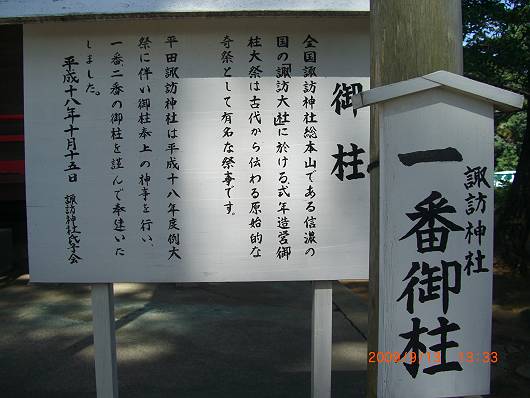 御柱
全国諏訪神社総本山である信濃の
国の諏訪大社に於ける式年造営御
柱大祭は古代から伝わる原始的な
奇祭として有名な祭事です。
平田諏訪神社は平成十八年度例大
祭に伴い御柱奉上の神事を行い、
一番二番の御柱を謹んで奉建いた
しました。
平成十八年十月十五日
諏訪神社氏子会
諏訪神社
一番御柱
2009/9/13 13:33